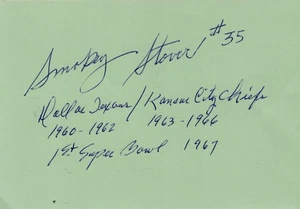 Smokey Stover #35
Dallas Texans / Kansas City Chiefs
1960-1962 1963-1966
1st Super Bowl 1967